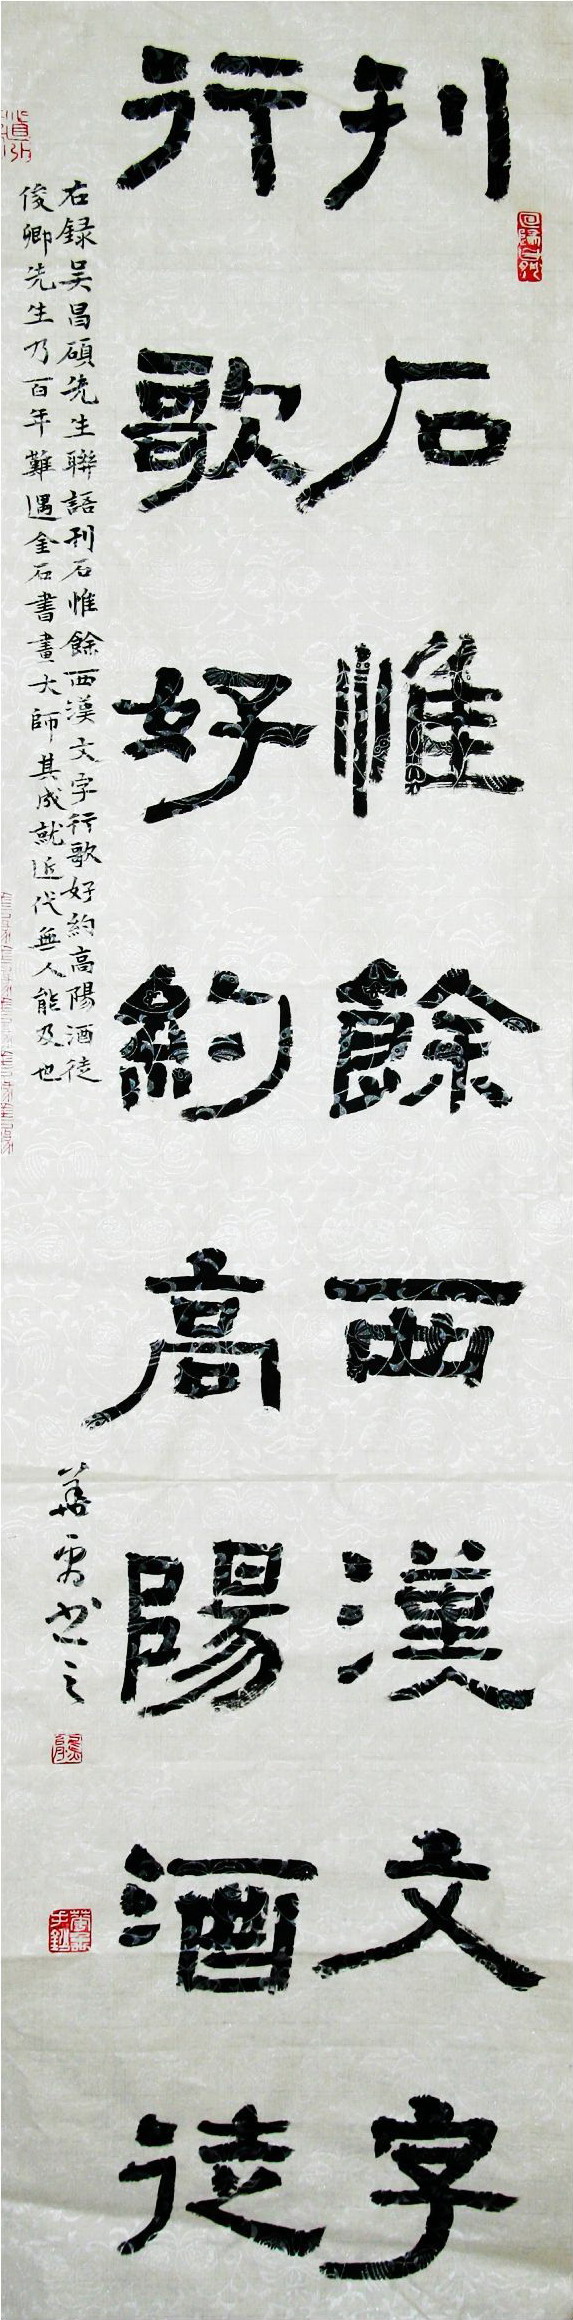 刊石惟餘西漢文字
行歌好約高陽酒徒
右録吴昌碩先生聯語刊石惟餘西漢文字行歌好約高陽酒徒
俊卿先生乃百年難遇金石書畫大師其成就近代無人能及也
書之